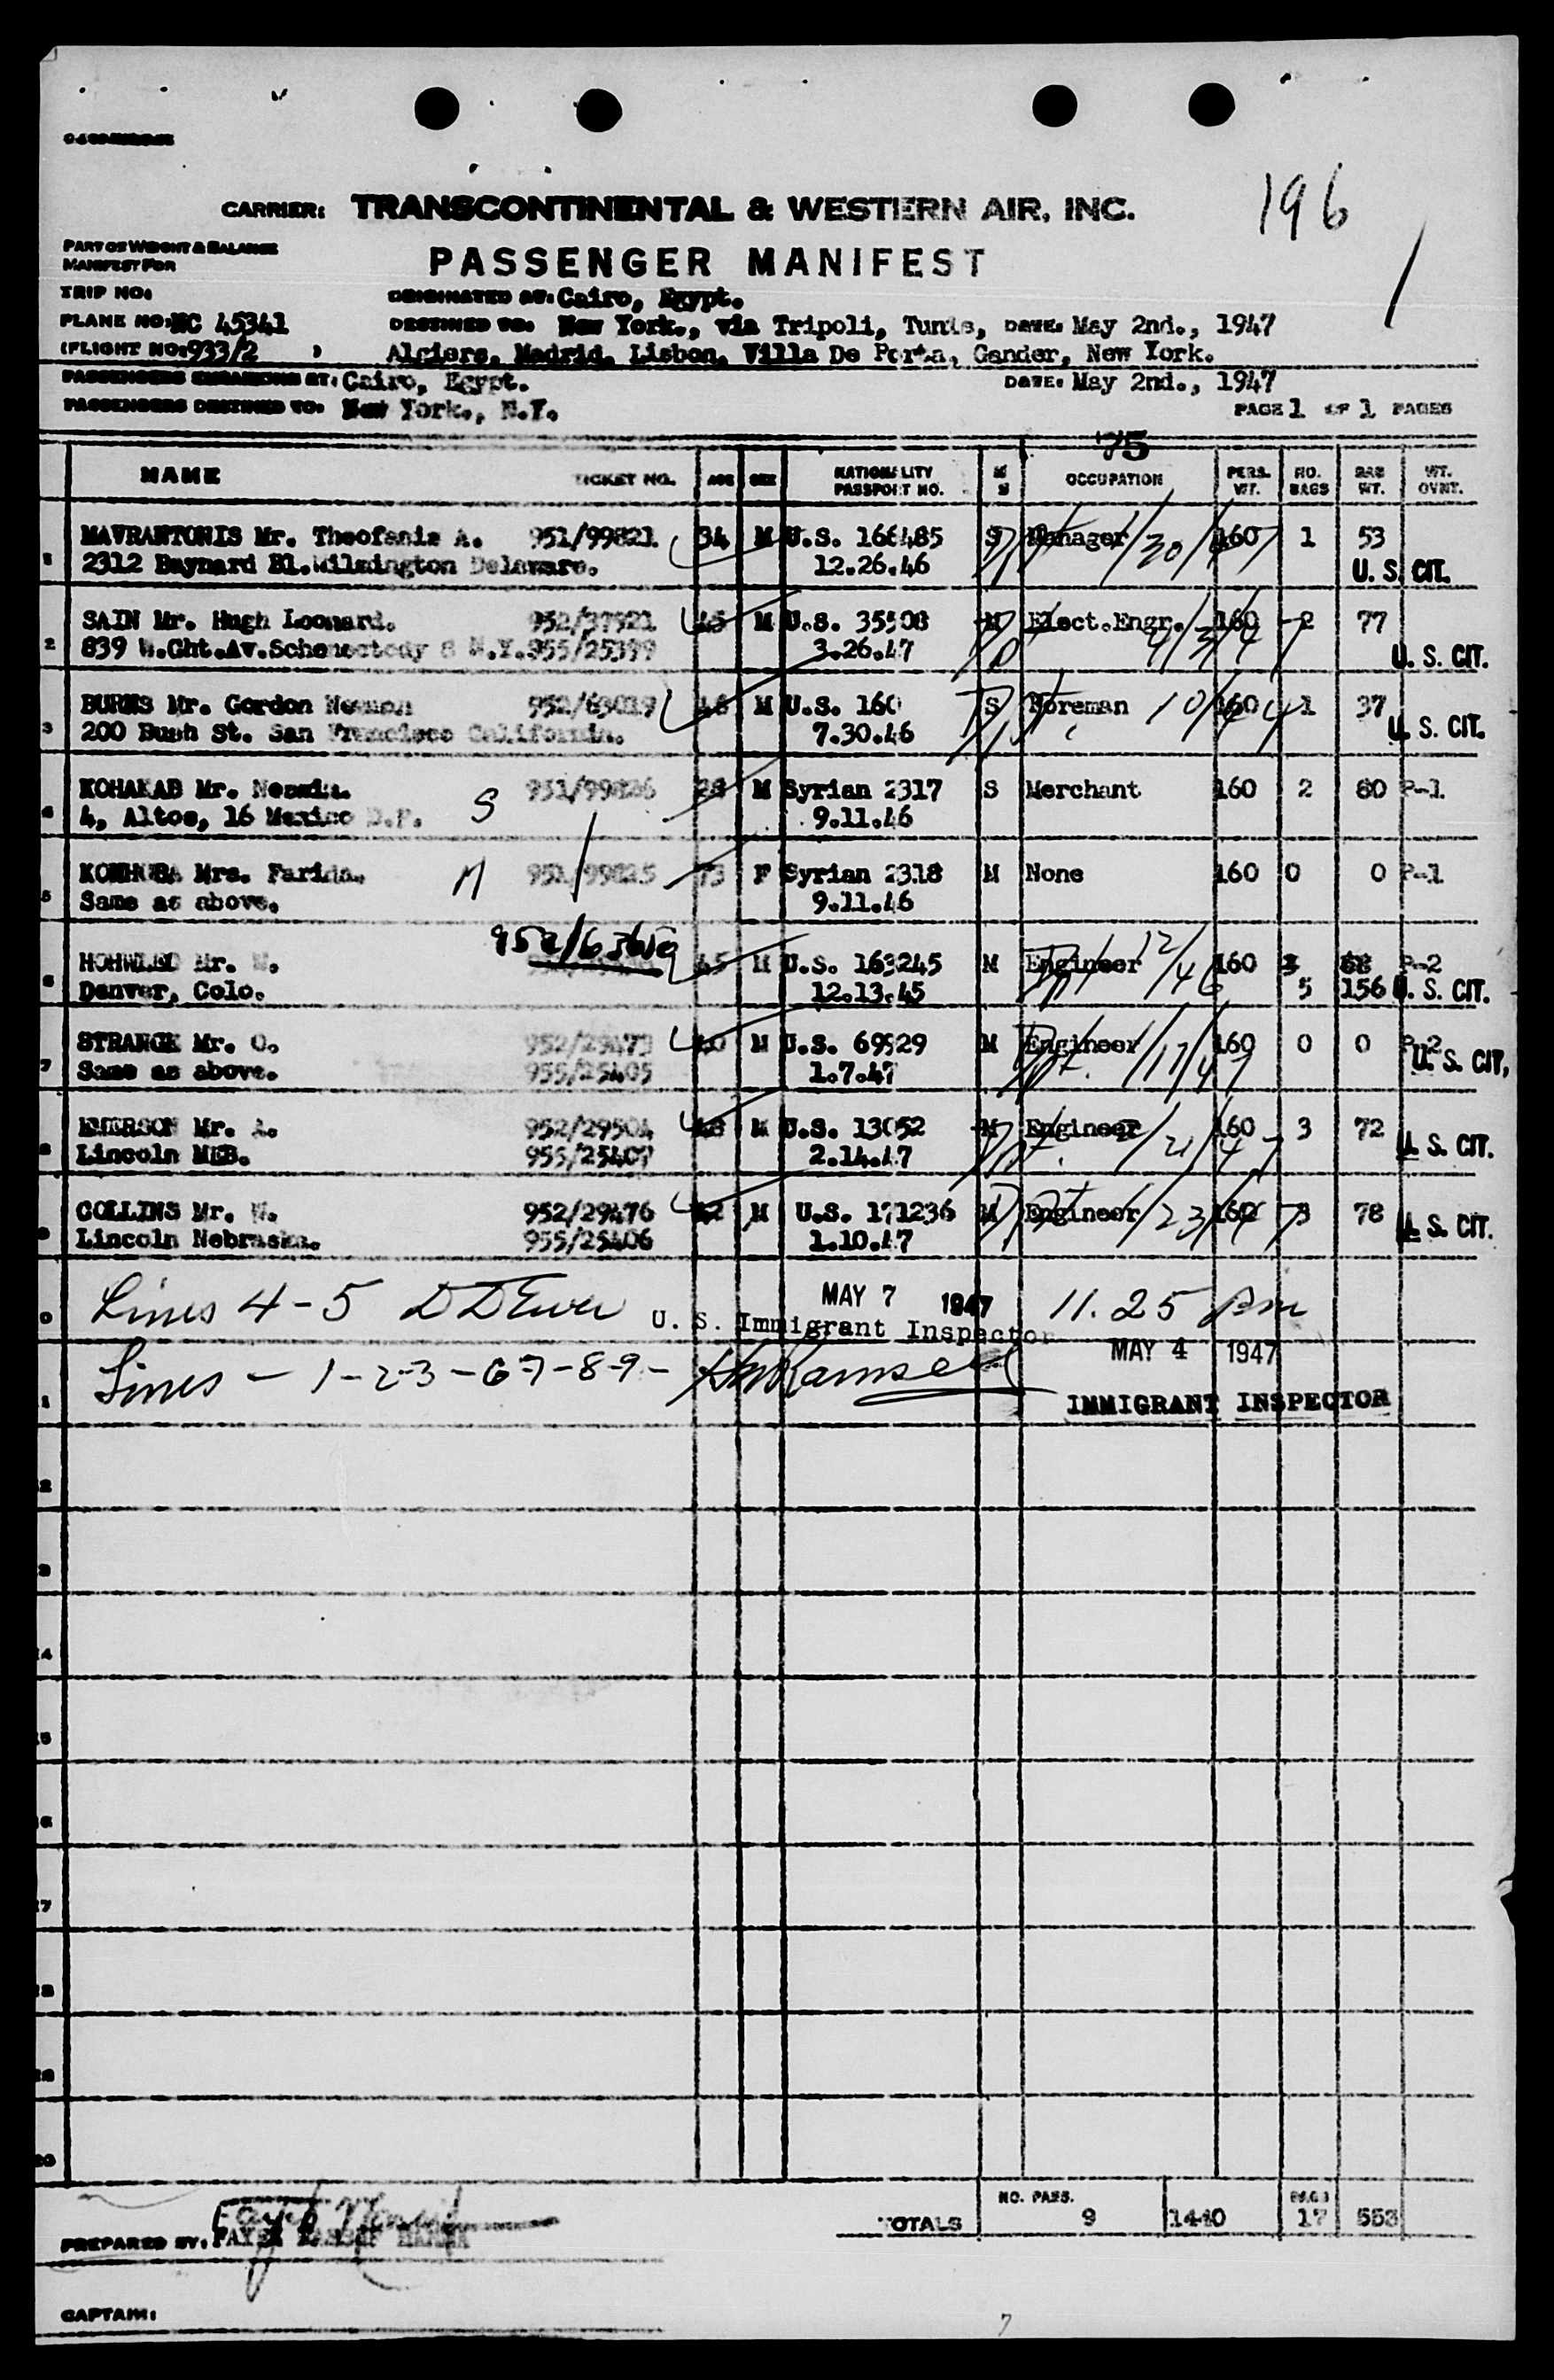 196
CARRIER: TRANSCONTINENTAL & WESTERN AIR, INC.
PART OF WEIGHT & BALANCE
MANIFEST FOR
PASSENGER MANIFEST
TRIP NO:
ORIGINATED AT: Cairo, Egypt.
PLANE NO: NC 45341
DESTINED TO: New York., via Tripoli, Tunis, DATE: May 2nd., 1947
(FLIGHT NO: 933/2 )
Algiers, Madrid, Lisbon, Villa De Porta, Gander, New York.
PASSENGERS EMBARKING AT: Cairo, Egypt. DATE: May 2nd., 1947
PASSENGERS DESTINED TO: New York., N.Y. PAGE 1 OF 1 PAGES
75
NAME TICKET NO. AGE SEX NATIONALITY PASSPORT NO. M S OCCUPATION PERS. WT. NO. BAGS BAG WT. WT. OVNT.
MAVRANTONIS Mr. Theofanis A. 951/99821 34 M U.S. 166485 S Manager 160 1 53
2312 Baynard Bl.Wilmington Delaware. 12.26.46 U. S. CIT.
SAIN Mr. Hugh Leonard. 952/37921 45 M U.S. 35508 M Elect.Engr. 160 2 77
839 W.Ght.Av.Schenectady 8 N.Y. 955/25399 3.26.47 U. S. CIT.
BURNS Mr. Gordon Newman 952/63019 M U.S. 160 S Foreman 160 1 37
200 Bush St. San Francisco California. 7.30.46 U. S. CIT.
KOHAKAB Mr. 951/99826 28 M Syrian 2317 S Merchant 160 2 80 P-1
4, Altos, 16 Mexico D.F. S 9.11.46
Mrs. Farida. M 951/99825 73 F Syrian 2318 M None 160 0 0 P-1
Same as above. 9.11.46
Mr. W. 45 M U.S. 163245 M Engineer 12/46 160 P-2
Denver, Colo. 12.13.45 5 156 U. S. CIT.
STRANGE Mr. O. 952/29473 40 M U.S. 69929 M Engineer 160 0 0 P-2
Same as above. 955/25405 1.7.47 1/17/47 U. S. CIT.
EMERSON Mr. A. 952/29504 M U.S. 13052 M Engineer 160 3 72
Lincoln NEB. 955/25407 2.14.47 U. S. CIT.
COLLINS Mr. W. 952/29476 42 M U.S. 171236 M Engineer 160 3 78
Lincoln Nebraska. 955/25406 1.10.47 U. S. CIT.
Lines 4-5 MAY 7 1947 11.25
U. S. Immigrant Inspector
MAY 4 1947
Lines - 1-2-3-6-7-8-9-
IMMIGRANT INSPECTOR
NO. PASS. BAGS
TOTALS 9 1440 17 553
PREPARED BY:
CAPTAIN:
7